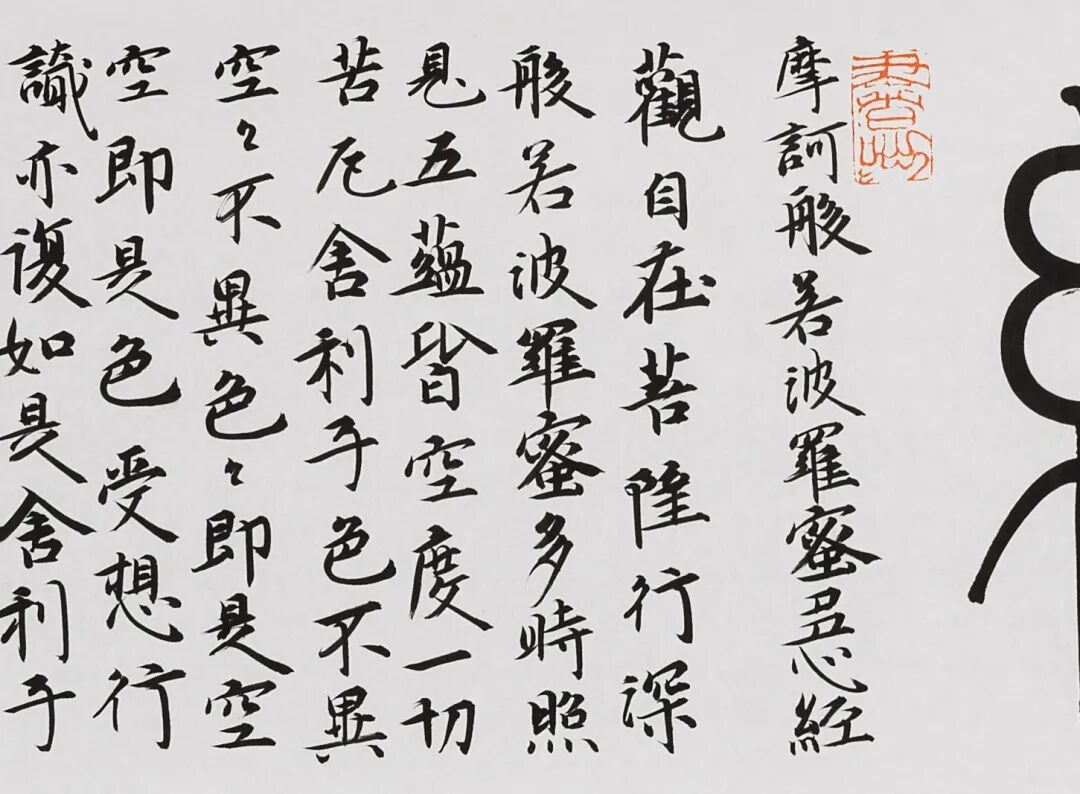 摩訶般若波羅蜜多心經
觀自在菩薩行深
般若波羅蜜多時照
見五蘊皆空度一切
苦厄舍利子色不異
空々不異色々即是空
空即是色受想行
識亦復如是舍利子